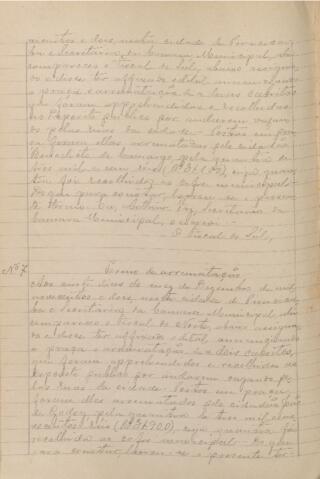 novecentos e dois, nesta cidade de Piracicaba
e Secretaria da Camara Municipal, ahi
compareceu o Fiscal do Sul, abaixo assigna-
do e disse ter affixado edital annunciando
a praça e arrematação de cabritos
que foram apprehendidos e recolhidos
ao deposito publico por andarem vagan-
do pelas ruas da cidade. Postos em pra-
ça foram elles arrematados pelo cidadão
Benedicto de Camargo pela quantia de
tres mil e cem reis (R$ 3.100), cuja quan-
tia foi recolhida ao cofre municipal.
Do que para constar, lavrou-se o presente
termo. Eu, Secretario da
Camara Municipal, o escrevi.
O Fiscal do Sul,
Nº 7 Termo de arrematação
Aos dias do mez de Dezembro de mil
novecentos e dois, nesta cidade de Piracica-
ba e Secretaria da Camara Municipal ahi
compareceu o Fiscal do Norte, abaixo assigna-
do e disse ter affixado edital annunciando
a praça e arrematação de dois cabritos,
que foram apprehendidos e recolhidos ao
deposito publico por andarem vagando pe-
las ruas da cidade. Postos em praça
foram elles arrematados pelo cidadão
de pela quantia de tres mil e
novecentos reis (R$ 3.900), cuja quantia foi
recolhida ao cofre municipal. Do que
para constar, lavrou-se o presente ter-